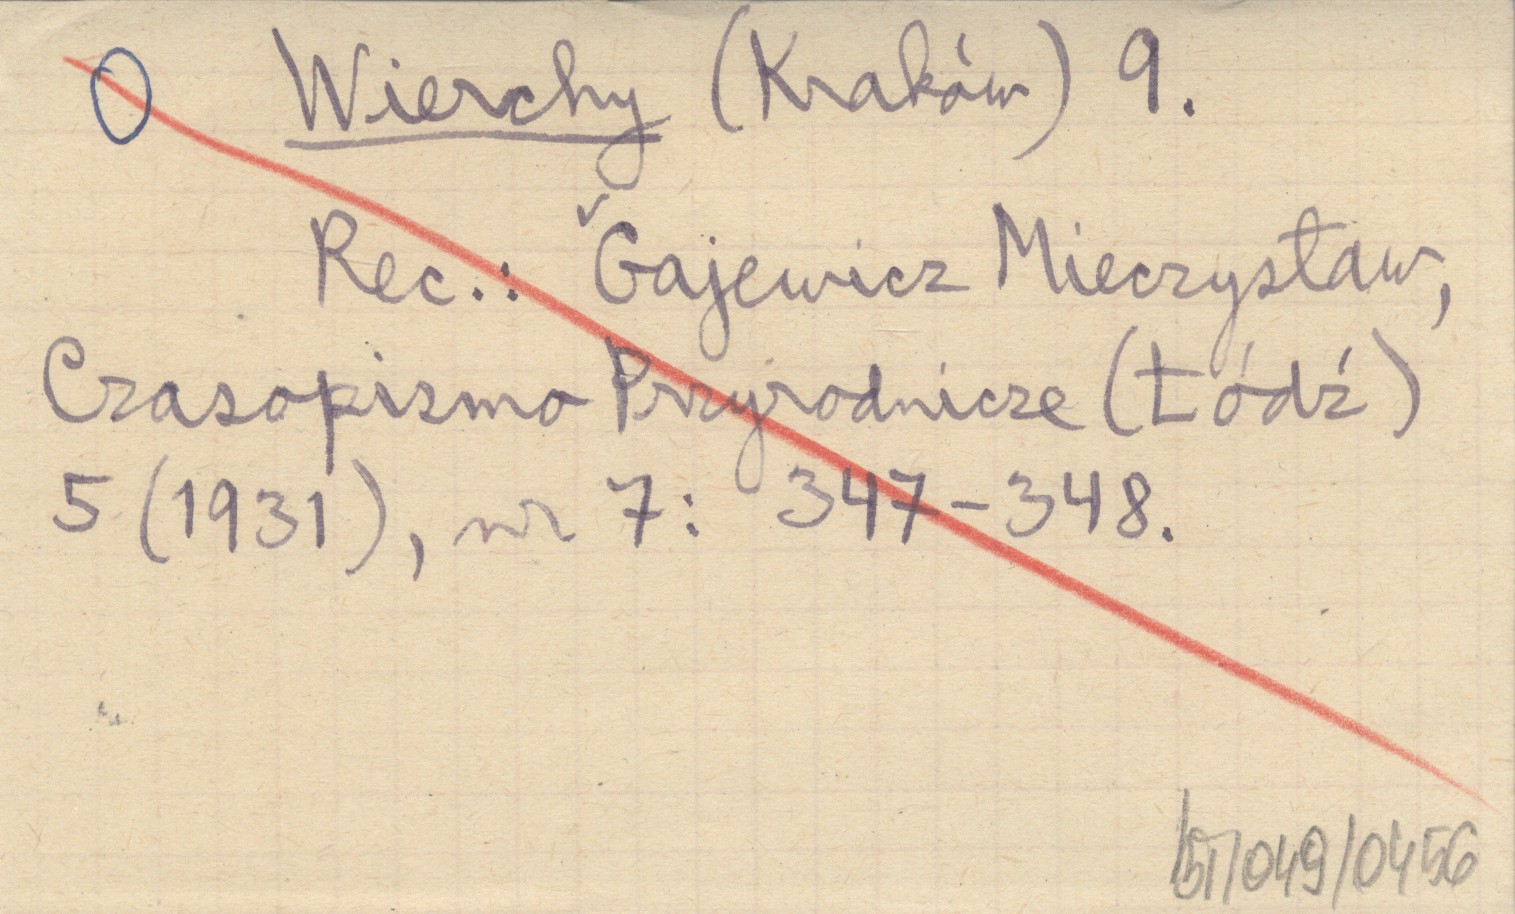 Wierchy (Kraków) 9.
Rec.: Gajewicz Mieczysław,
Czasopismo Przyrodnicze (Łódź)
5 (1931), nr 7: 347-348.
/049/0456